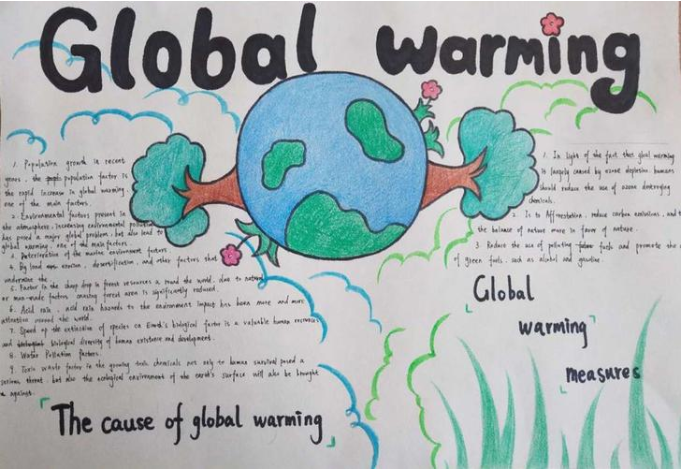 Global warming
1. Population growth in recent
years, the population factor is
the rapid increase in global warming
one of the main factors.
2. Environmental factors present in
the atmosphere, increasing environmental pollution
has posed a major global problem and also lead to
global warming, one of the main factors.
3. Deterioration of the marine environment factors
4. By land erosion, desertification, and other factors that
undermine the
5. Factor in the sharp drop in forest resources a round the world, due to natural
or man-made factors causing forest area is significantly reduced.
6. Acid rain, acid rain hazards to the environment impact has been more and more
attention around the world.
7. Speed up the extinction of species on Earth's biological factor is a valuable human resources
and biological diversity of human existence and development.
8. Water Pollution factors.
9. Toxic waste factor in the growing toxic chemicals not only to human survival posed a
serious threat, but also the ecological environment of the earth's surface will also be brought
against.
The cause of global warming
1. In light of the fact that glod warming
is largely caused by ozone depletion humans
should reduce the use of ozone destroying
chemicals.
2. Is to Afforestation, reduce carbon emissions, and t
the balance of nature more in favor of nature.
3. Reduce the use of polluting fuels and promote the
of green fuels, such as alcohol and gasoline.
Global
warming
measures